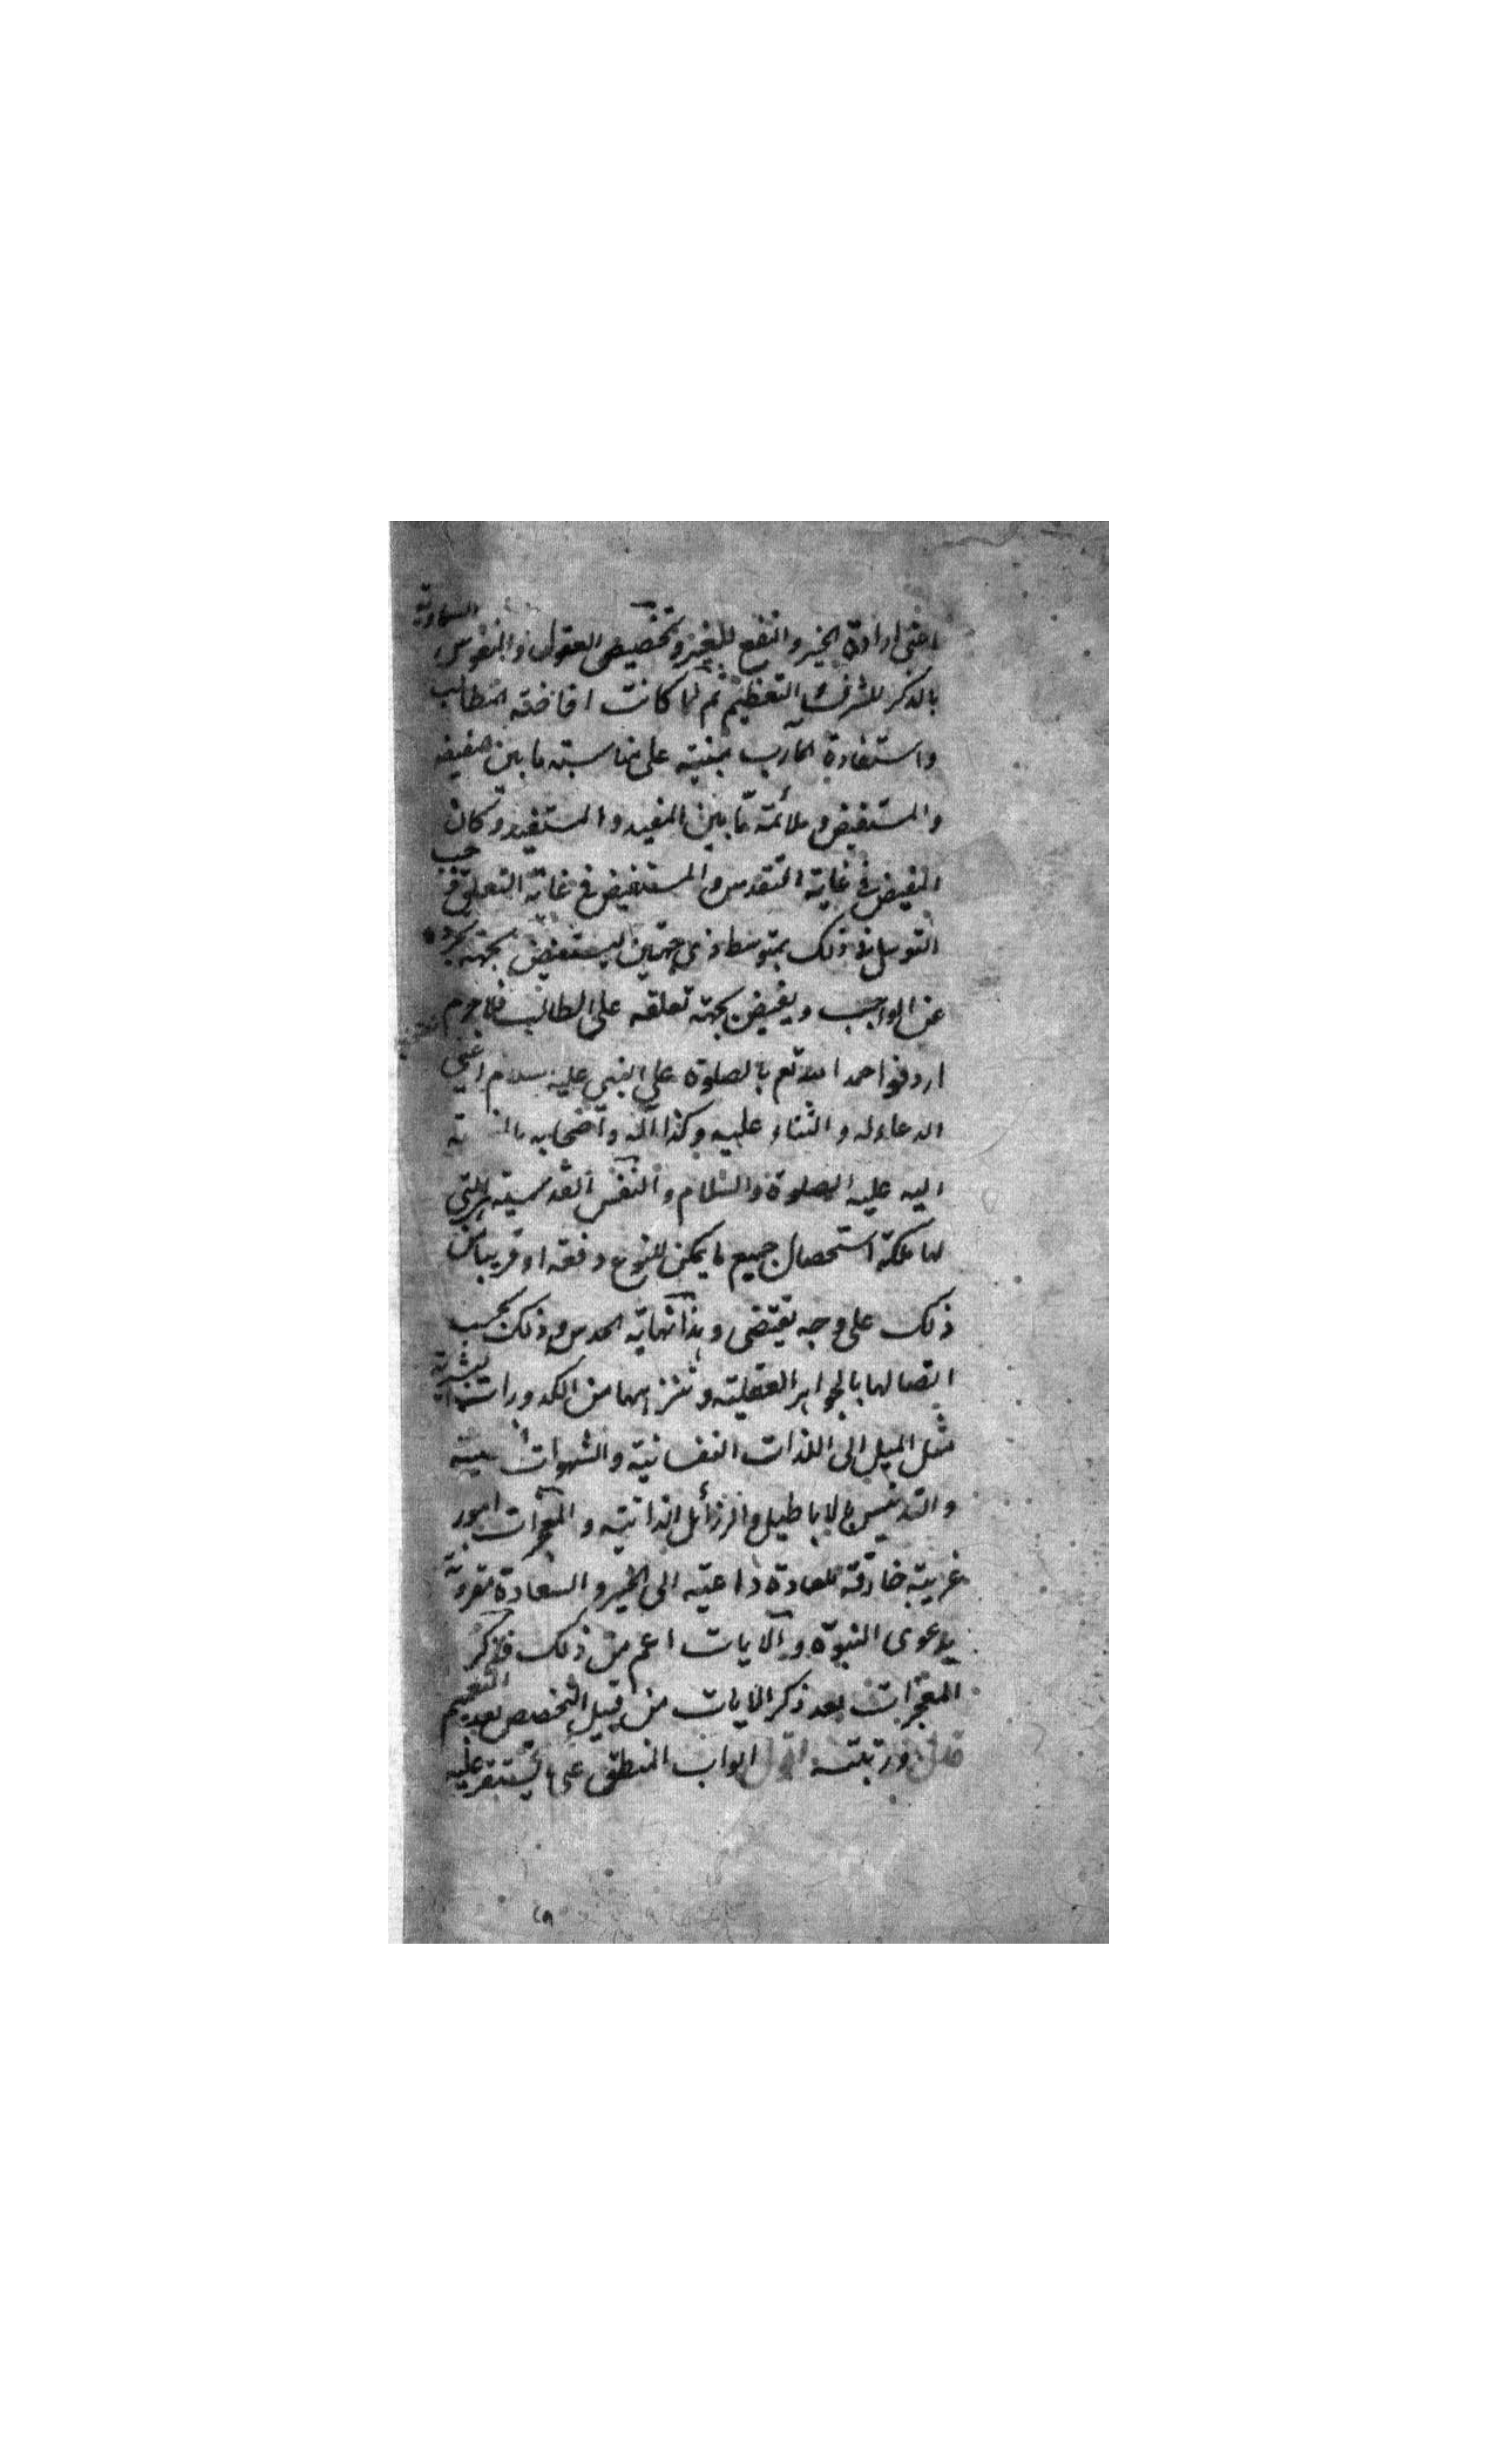 اعنى ارادة الخير والنفع للغير وتخصيص العقول والنفوس السماوية
بالذكر للشرف والتعظيم ثم لما كانت افاضة المطالب
واستفادة المآرب مبنية على مناسبة ما بين المفيض
والمستفيض وملائمة ما بين المفيد والمستفيد وكان
المفيض في غاية التقدس والمستفيض في غاية التعلق فوجب
التوسل في ذلك بمتوسط ذي جهتين ليستفيض بجهة تجرده
عن الواجب ويفيض بجهة تعلقه على الطالب فلا جرم
اردفوا حمد الله تع بالصلوة على النبي عليه السلام اعنى
الدعاء له والثناء عليه وكذا آله واصحابه
اليه عليه الصلوة والسلام والنفس القدسية هي التي
لها ملكة استحصال جميع ما يمكن للنوع دفعة او قريبا من
ذلك على وجه يقتضى وهذا نهاية الحدس وذلك بحسب
اتصالها بالجواهر العقلية وتنزهها من الكدورات البشرية
مثل الميل الى اللذات النفسانية والشهوات
والتدنيس بالاباطيل والرذائل الذاتية والمعجزات امور
غريبة خارقة للعادة داعية الى الخير والسعادة مقرونة
بدعوى النبوة والآيات اعم من ذلك فذكر
المعجزات بعد ذكر الايات من قبيل التخصيص بعد التعميم
قال ورتبته اقول ابواب المنطق على ما يستقر عليه